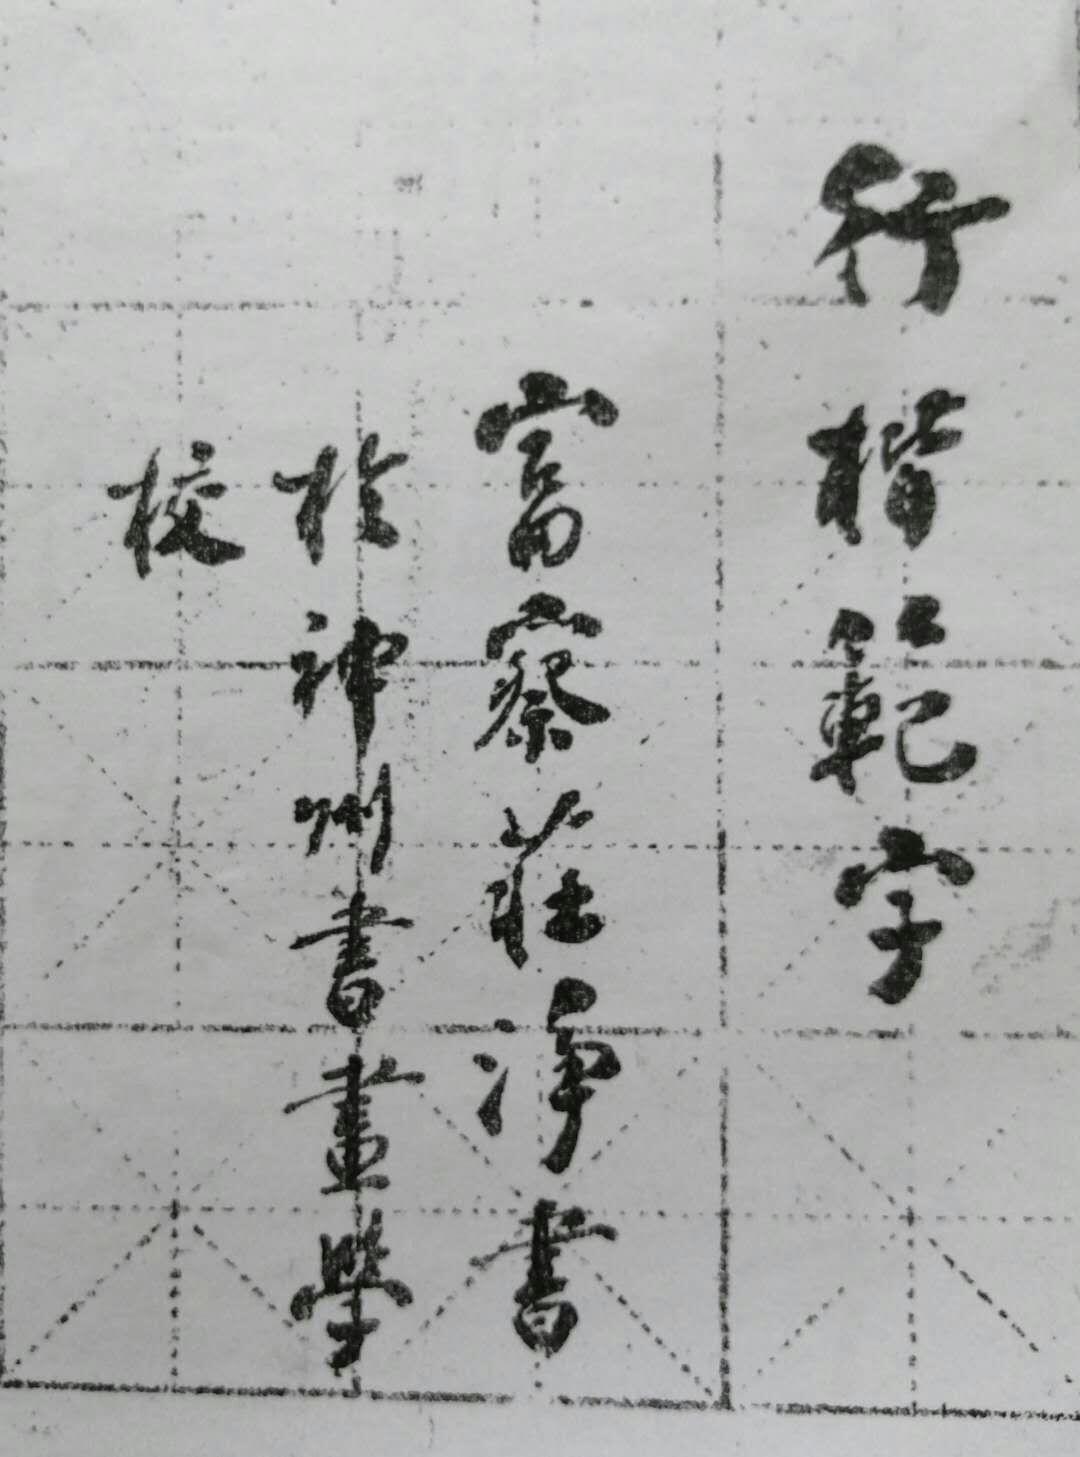 行楷範字
富察莊淨書
於神州書畫學
校